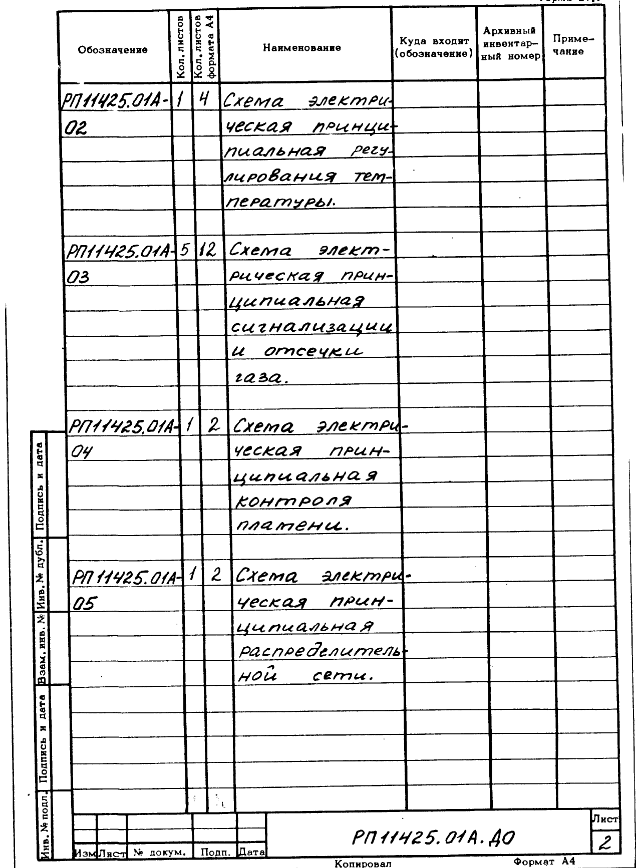 Обозначение Кол. листов Кол. листов формата А4 Наименование Куда входит (обозначение) Архивный инвентар-ный номер Приме-чание
РП11425.01А- 1 4 Схема электри-
02 ческая принци-
пиальная регу-
лирования тем-
пературы.
РП11425.01А- 5 12 Схема элект-
03 рическая прин-
ципиальная
сигнализации
и отсечки
газа.
РП11425.01А- 1 2 Схема электри-
04 ческая прин-
ципиальная
контроля
пламени.
РП11425.01А- 1 2 Схема электри-
05 ческая прин-
ципиальная
распределитель-
ной сети.
Подпись и дата
Инв. № дубл.
Взам. инв. №
Подпись и дата
Инв. № подл.
Изм Лист № докум. Подп. Дата
РП11425.01А.ДО
Лист
2
Копировал Формат А4